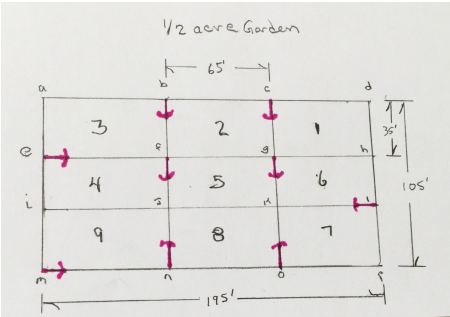 1/2 acre Garden
65'
a b c d
3 2 1
35'
e f g h
4 5 6
105'
i j k l
9 8 7
m n o p
195'